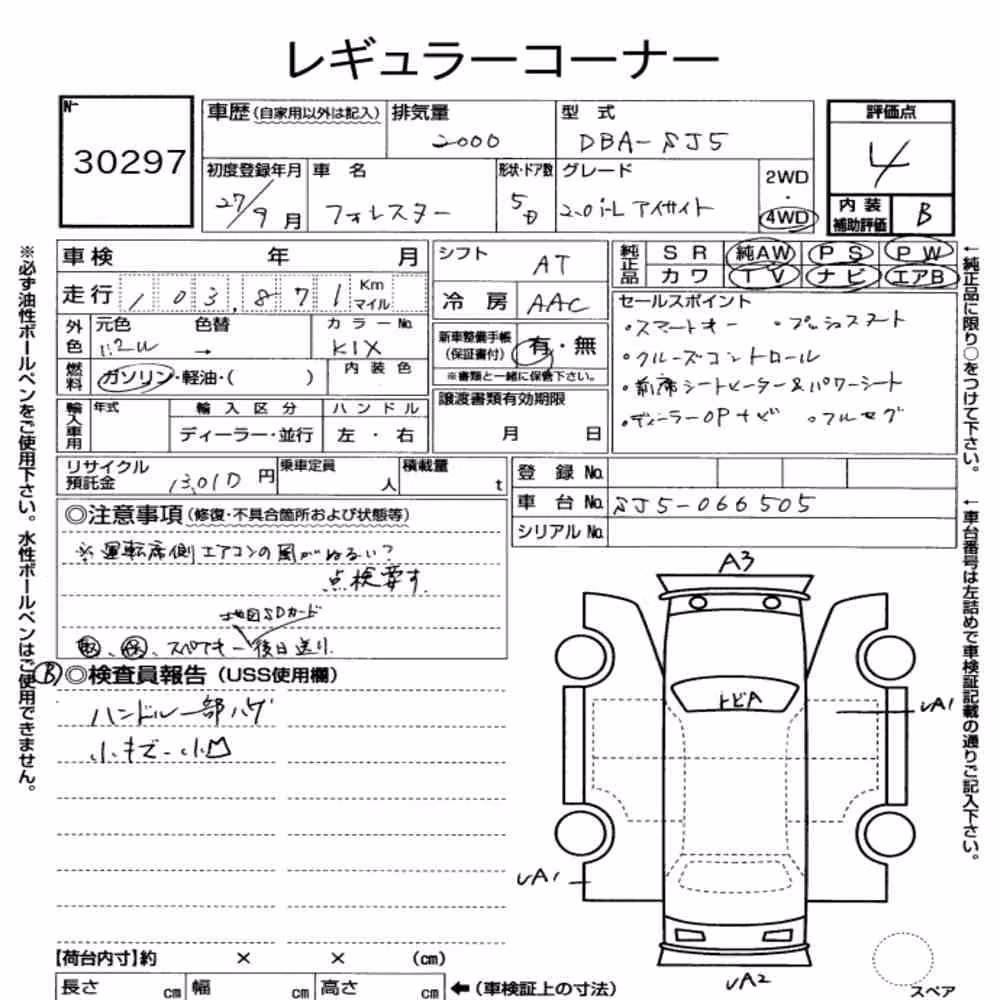 レギュラーコーナー
№ 30297
車歴(自家用以外は記入) 排気量 2000 型式 DBA-SJ5
初度登録年月 27/9月 車名 フォレスター 形状・ドア数 5D グレード 2.0i-L アイサイト 2WD・4WD
評価点 4
内装補助評価 B
車検 年 月
走行 103,871 Km マイル
シフト AT
冷房 AAC
純正品 SR 純AW PS PW
カワ TV ナビ エアB
外色 元色 色替 → カラーNo. K1X
燃料 ガソリン・軽油・( ) 内装色
新車整備手帳(保証書付) 有・無
※書類と一緒に保管下さい。
セールスポイント
・スマートキー ・プッシュスタート
・クルーズコントロール
・前席シートヒーター&パワーシート
・ディーラーOPナビ ・フルセグ
輸入車用 年式 輸入区分 ハンドル
ディーラー・並行 左・右
譲渡書類有効期限
月 日
リサイクル預託金 13,010円 乗車定員 人 積載量 t
登録No.
車台No. SJ5-066505
シリアルNo.
◎注意事項(修復・不具合箇所および状態等)
※運転席側エアコンの風がぬるい?
点検要す.
地図SDカード
スペアキー後日送り.
Ⓑ◎検査員報告(USS使用欄)
ハンドル一部ハゲ
小キズ・小凹
A3
トビA
A1
A1
A2
スペア
【荷台内寸】約 × × (cm)
長さ cm 幅 cm 高さ cm ←(車検証上の寸法)
※必ず油性ボールペンをご使用下さい。水性ボールペンはご使用できません。
←純正品に限り○をつけて下さい。
←車台番号は左詰めで車検証記載の通りご記入下さい。